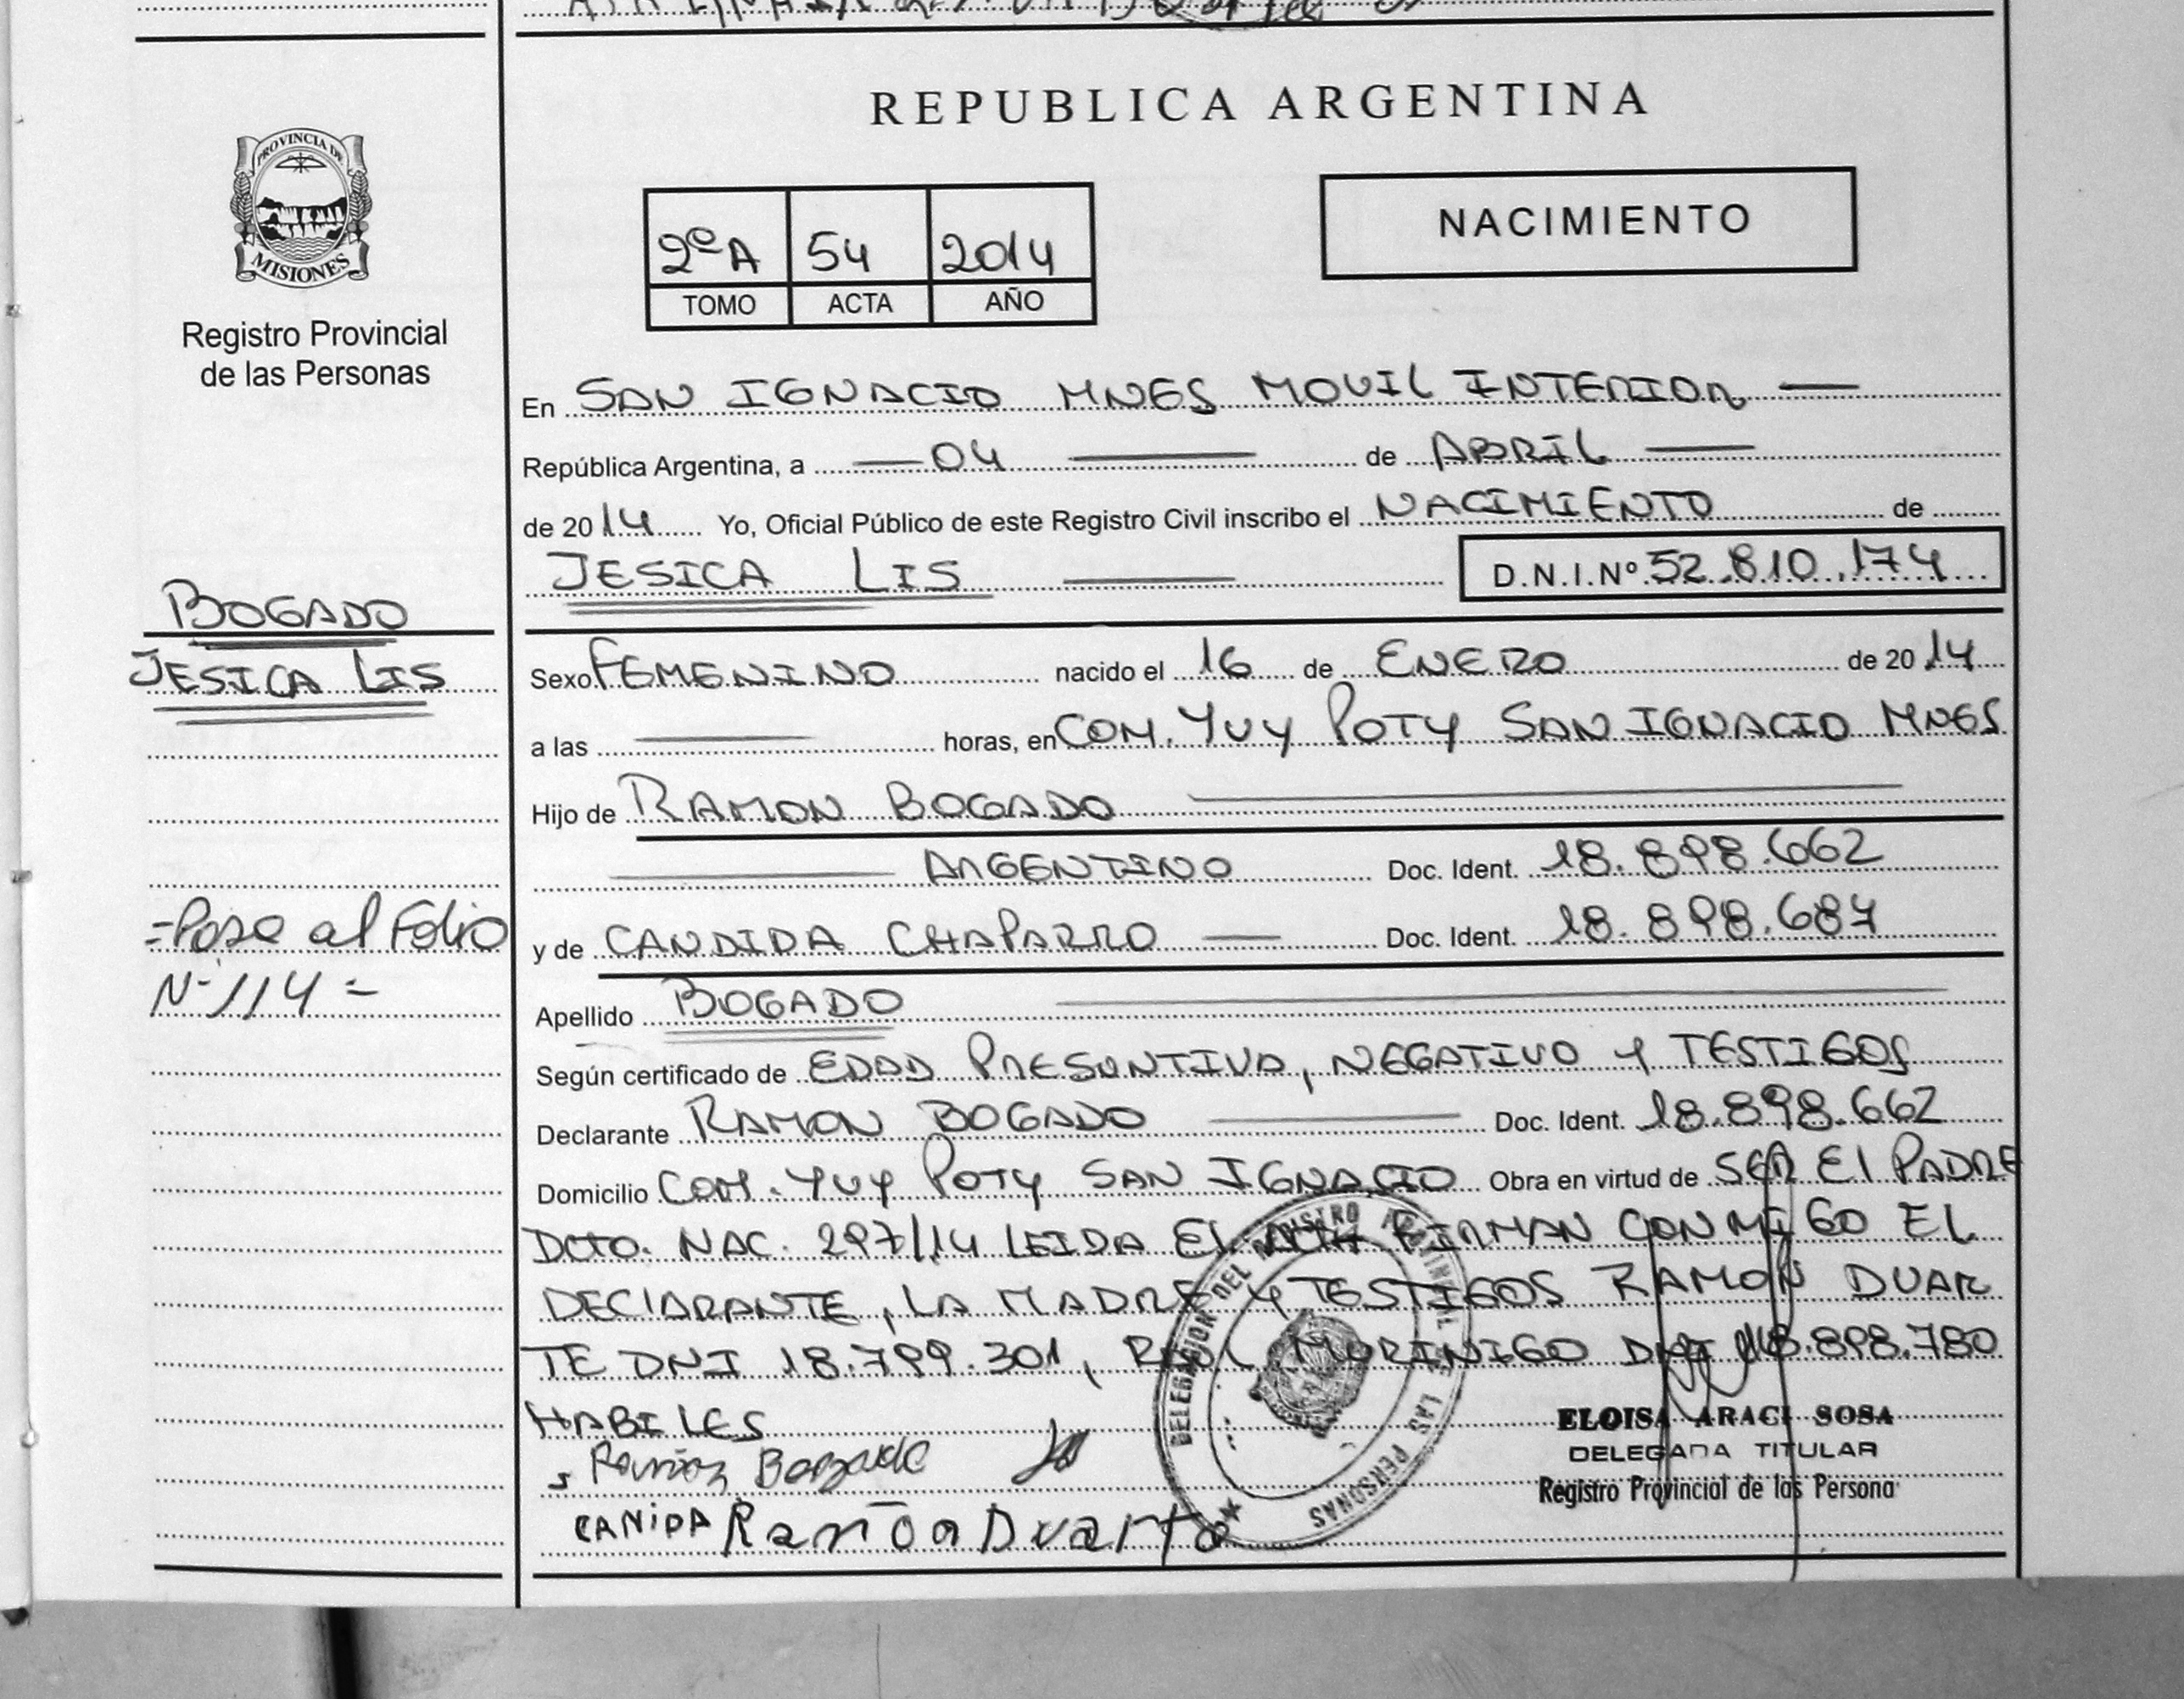 REPUBLICA ARGENTINA
PROVINCIA DE
MISIONES
Registro Provincial
de las Personas
NACIMIENTO
2ºA 54 2014
TOMO ACTA AÑO
En SAN IGNACIO MNES MOVIL INTERIOR
República Argentina, a 04 de ABRIL
de 2014 Yo, Oficial Público de este Registro Civil inscribo el NACIMIENTO de
JESICA LIS D.N.I.Nº 52.810.174
BOGADO
JESICA LIS
Sexo FEMENINO nacido el 16 de ENERO de 2014
a las horas, en COM. YUY POTY SAN IGNACIO MNES
Hijo de RAMON BOGADO
ARGENTINO Doc. Ident. 18.898.662
y de CANDIDA CHAPARRO Doc. Ident. 18.898.687
=Pase al Folio
Nº 114=
Apellido BOGADO
Según certificado de EDAD PRESUNTIVA, NEGATIVO Y TESTIGOS
Declarante RAMON BOGADO Doc. Ident. 18.898.662
Domicilio COM. YUY POTY SAN IGNACIO Obra en virtud de SER El PADRE
DCTO. NAC. 297/14 LEIDA EL ACTA FIRMAN CONMIGO EL
DECLARANTE, LA MADRE Y TESTIGOS RAMON DUAR
TE DNI 18.799.301, RAUL MORINIGO DNI 18.898.780
HABILES
Ramón Bogado
CANIDA Ramón Duarte
DELEGACION DEL REGISTRO PROVINCIAL DE LAS PERSONAS
ELOISA ARACI SOSA
DELEGADA TITULAR
Registro Provincial de las Persona